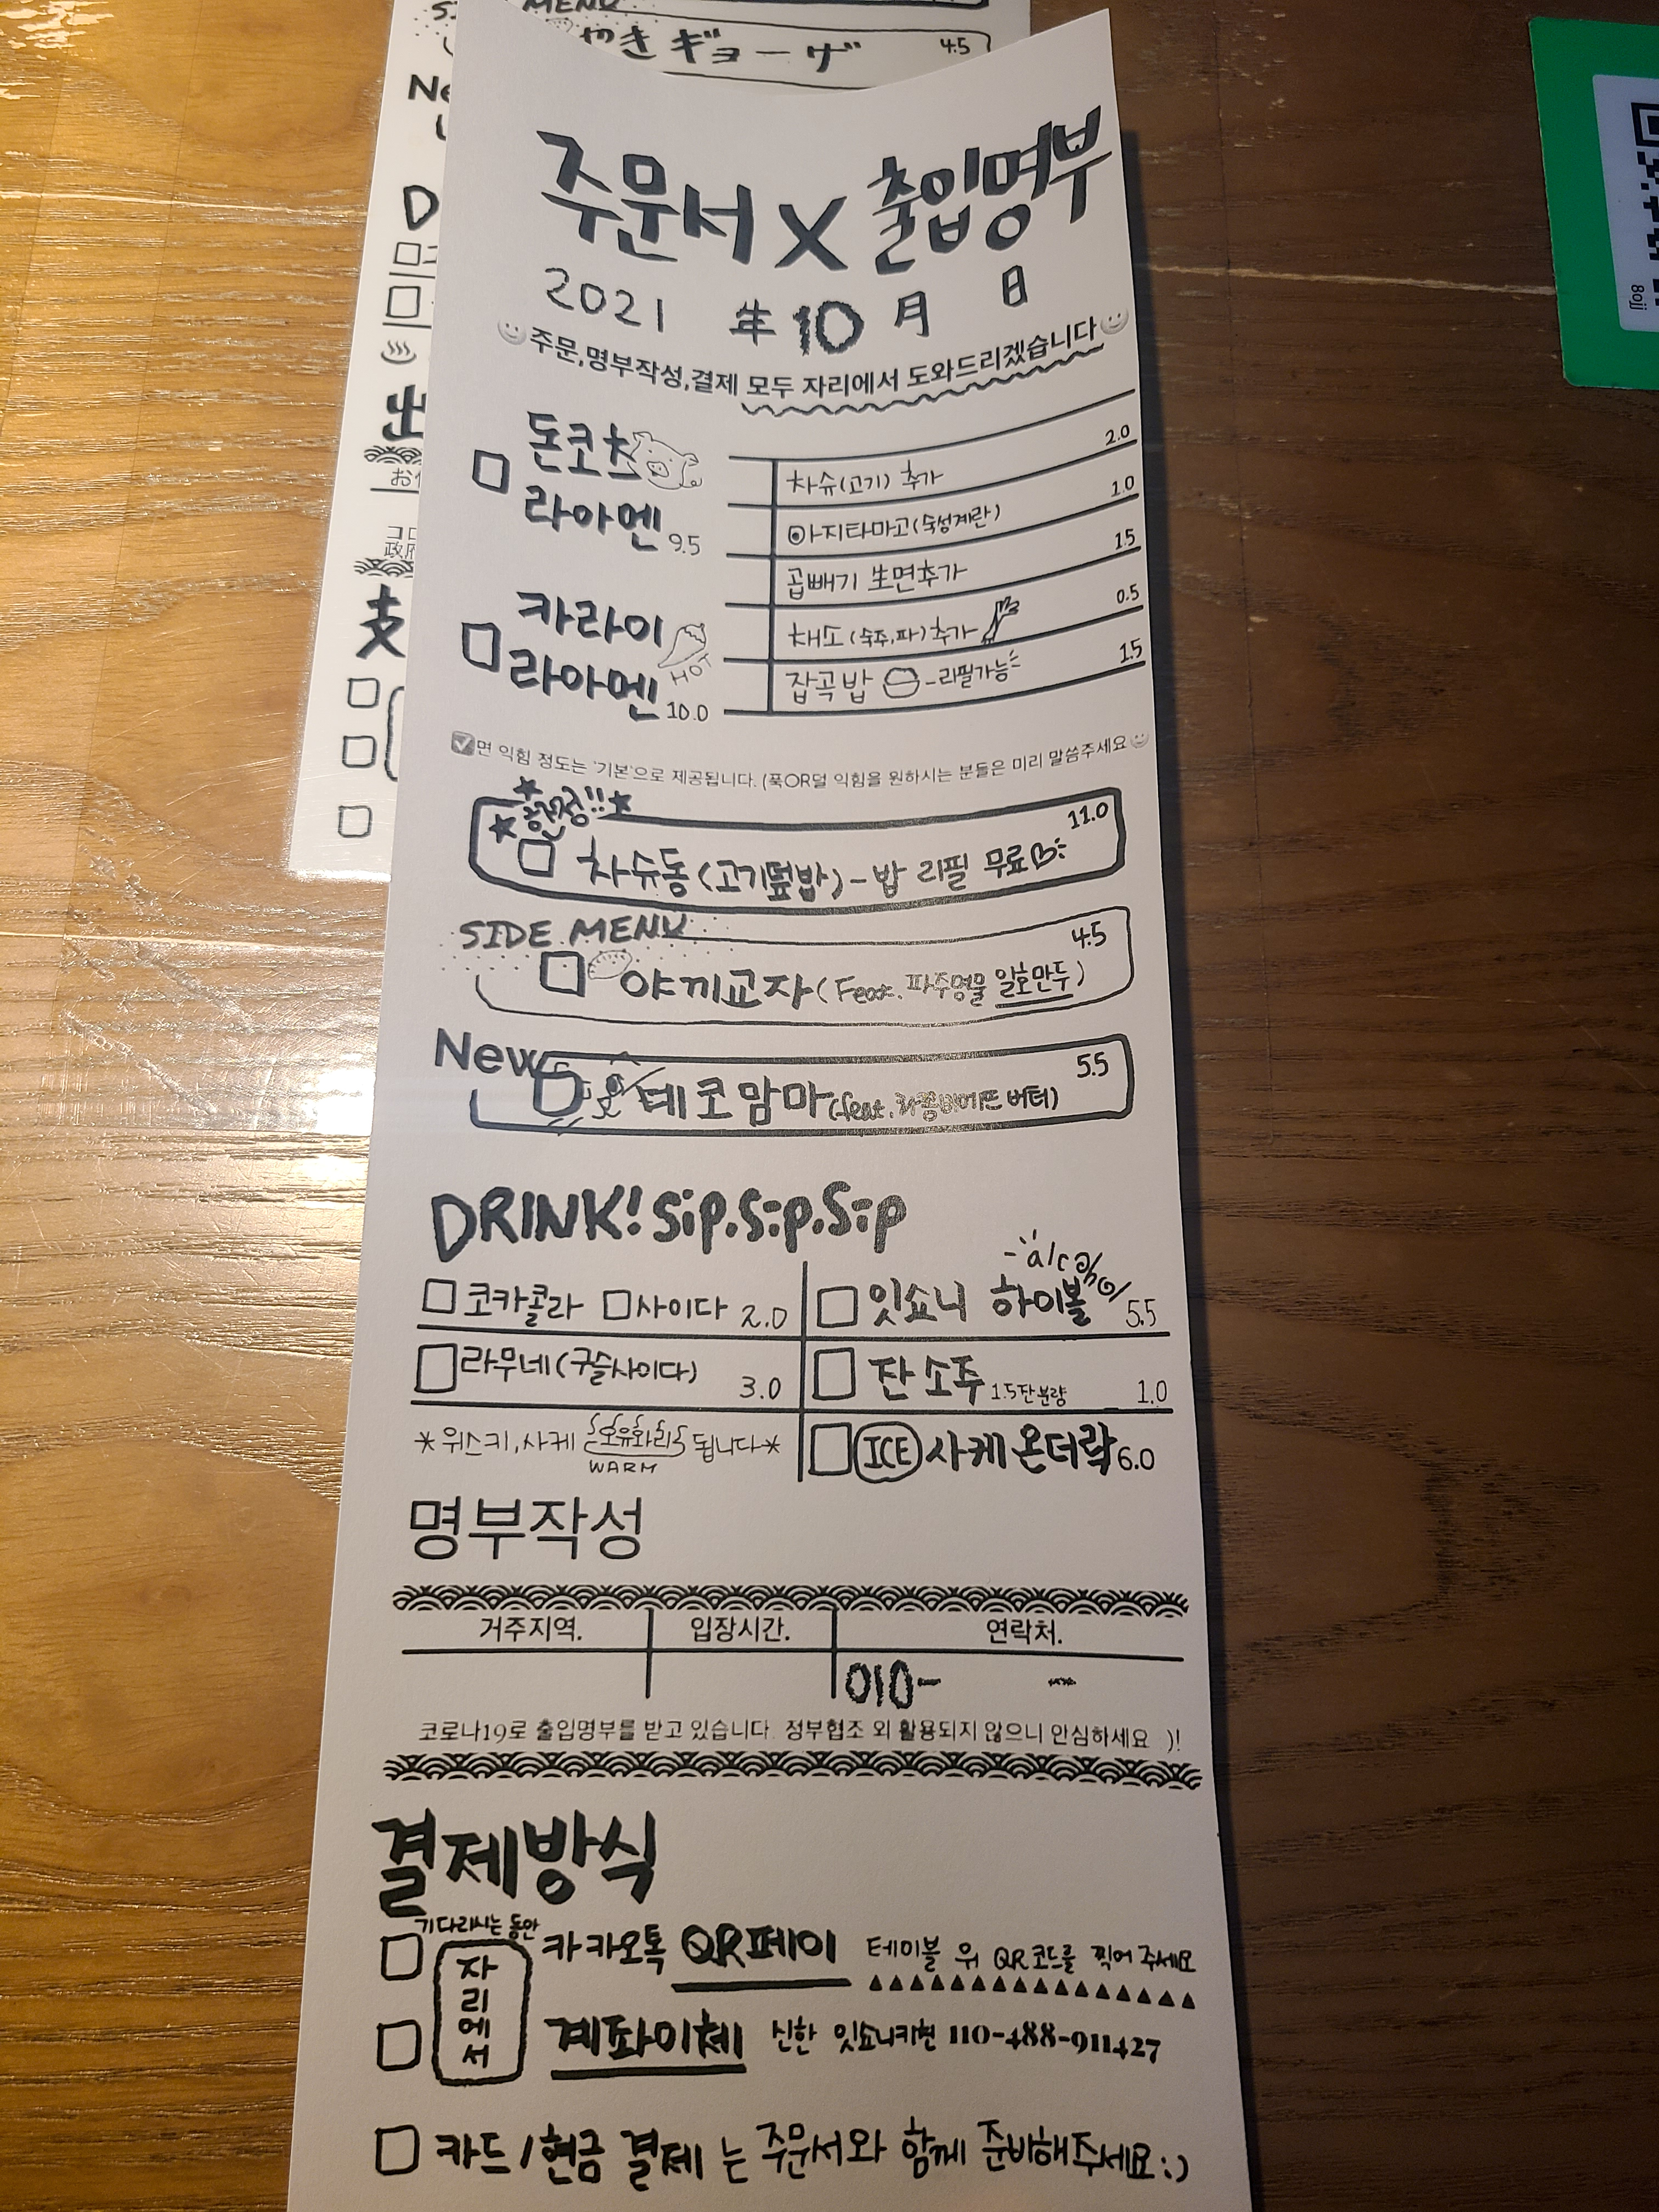 SIDE MENU
やきギョーザ 4.5
Ne
D
出
支
주문서 X 출입명부
2021 年 10 月 日
주문,명부작성,결제 모두 자리에서 도와드리겠습니다
돈코츠
라아멘 9.5
차슈(고기) 추가 2.0
아지타마고(숙성계란) 1.0
곱빼기 生면추가 1.5
채소(숙주,파)추가 0.5
잡곡밥 -리필가능 1.5
카라이
HOT
라아멘 10.0
면 익힘 정도는 '기본'으로 제공됩니다. (푹OR덜 익힘을 원하시는 분들은 미리 말씀주세요
한정!!
차슈동(고기덮밥)-밥 리필 무료 11.0
SIDE MENU
야끼교자(Feat.파주명물 일호만두) 4.5
New
테코맘마(feat.라꽁비에뜨 버터) 5.5
DRINK! Sip.Sip.Sip
코카콜라 사이다 2.0
라무네(구슬사이다) 3.0
*위스키,사케 온유화리 됩니다*
WARM
alcohol
잇쇼니 하이볼 5.5
잔소주 1.5잔분량 1.0
ICE 사케온더락 6.0
명부작성
거주지역. 입장시간. 연락처.
010- -
코로나19로 출입명부를 받고 있습니다. 정부협조 외 활용되지 않으니 안심하세요 )!
결제방식
기다리시는 동안
자리에서
카카오톡 QR페이 테이블 위 QR코드를 찍어 주세요
계좌이체 신한 잇쇼니키친 110-488-911427
카드/현금 결제 는 주문서와 함께 준비해주세요:)
8ojj